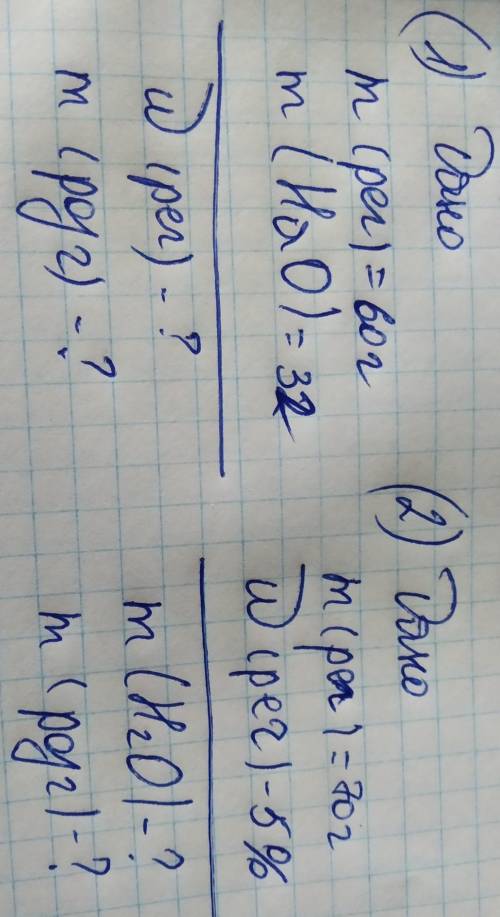 (1) Дано
m (реч) = 60г
m (H2O) = 32
w (реч) - ?
m (родз) - ?
(2) Дано
m (реч) = 70г
w (реч) - 5%
m (H2O) - ?
m (родз) - ?